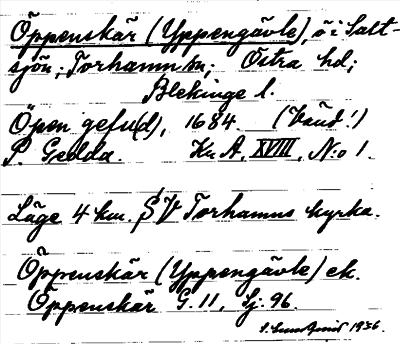 Öppenskär (Yppengävle), ö i Salt-
sjön; Torhamn sn; Östra hd;
Blekinge l.
Öpen gefu(d), 1684. (Våud!)
P. Gedda. Kr A, XVIII, N:o 1.
Läge 4 km. SV Torhamns kyrka.
Öppenskär (Yppengävle) ek.
Öppenskär G. 11, Sj. 96.
1936.